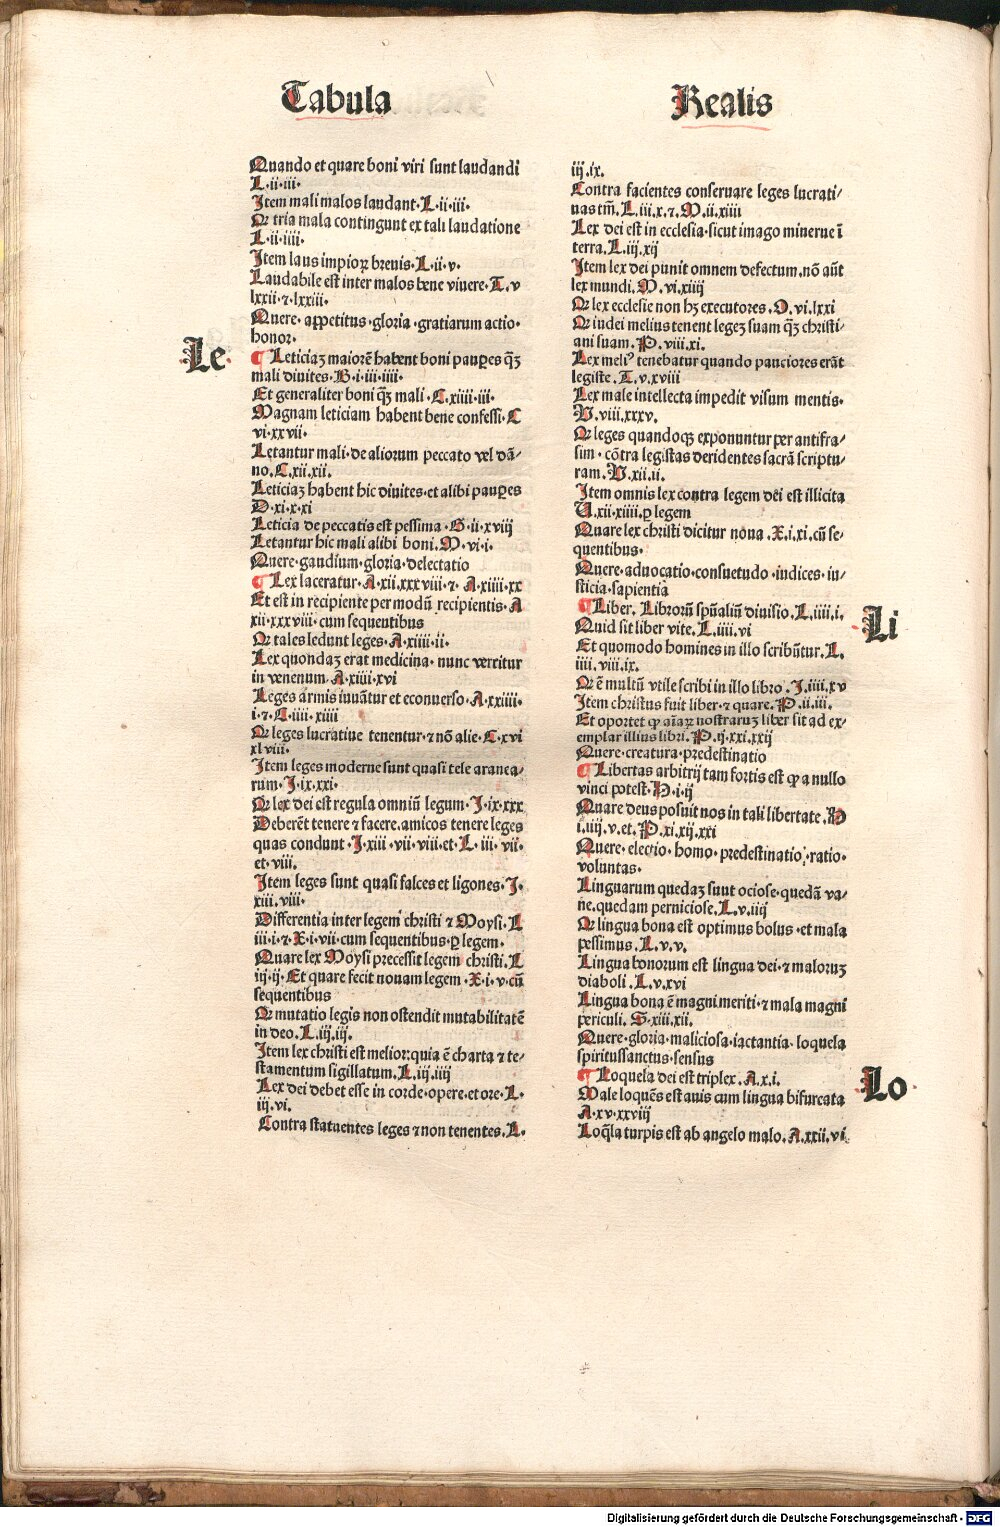 Tabula
Realis
Quando et quare boni viri sunt laudandi
L·ii·iii·
Item mali malos laudant·L·ii·iii·
Qꝛ tria mala contingunt ex tali laudatione
L·ii·iiii·
Item laus impioꝝ breuis·L·ii·v·
Laudabile est inter malos bene viuere·T·v
lxxii·⁊·lxxiii·
Quere· appetitus·gloria·gratiarum actio·
honor·
Le·
¶ Leticiaꝫ maiorē habent boni pauꝑes qꝫ̄
mali diuites·B·i·iii·iiii·
Et generaliter boni qꝫ̄ mali·C·xiiii·iii·
Magnam leticiam habent bene confessi·C
vi·xxvii·
Letantur mali·de aliorum peccato vel dā⸗
no.C.xii.xii.
Leticiaꝫ habent hic diuites·et alibi pauꝑes
D·xi·x·xi
Leticia de peccatis est pessima·G·ii·xviij
Letantur hic mali alibi boni.M·vi·i·
Quere·gaudium·gloria·delectatio
¶ Lex laceratur·A·xii.xxxviii·⁊· A·xiiii·xx
Et est in recipiente per modū recipientis·A
xii·xxxviii·cum sequentibus
Qꝛ tales ledunt leges·A·xiiii·ii·
Lex quondaꝫ erat medicina· nunc verritur
in venenum·A·xiiii·xvi
Leges armis iuuātur et econuerso·A·xxiiii·
i·⁊·C·iiii·xiiii
Qꝛ leges lucratiue tenentur·⁊ nō alie·C·xvi
xlviii·
Item leges moderne sunt quasi tele aranea⸗
rum·I·ix·xxi·
Qꝛ lex dei est regula omniū legum·I·ix·xxx
Deberēt tenere ⁊ facere.amicos tenere leges
quas condunt·I·xiii·vii·viii·et·L·iii·vii·
et·viii.
Item leges sunt quasi falces et ligones·I·
xiii.viii·
Differentia inter legem christi ⁊ Moysi.L
iii·i·⁊·X·i·vii·cum sequentibus·ꝑ legem·
Quare lex Moysi precessit legem christi.L
iij·ij·Et quare fecit nouam legem·X·i·v·cū
sequentibus
Qꝛ mutatio legis non ostendit mutabilitatē
in deo.L.iij.iij.
Item lex christi est melior:quia ē charta ⁊ te⸗
stamentum sigillatum.L.iij.iiij
Lex dei debet esse in corde·opere.et ore·L·
iij.vi.
Contra statuentes leges ⁊ non tenentes.L.
iij.ix.
Contra facientes conseruare leges lucrati⸗
uas tm̄.L.iii.x.⁊.M.ii.xiiii
Lex dei est in ecclesia·sicut imago minerue ī
terra.L.iij.xij
Item lex dei punit omnem defectum.nō aūt
lex mundi.M.vi.xiiij
Qꝛ lex ecclesie non hꝫ executores.O.vi.lxxi
Qꝛ iudei melius tenent legeꝫ suam qꝫ̄ christi⸗
ani suam.P.viii.xi.
Lex meliꝰ tenebatur quando pauciores erāt
legiste.T.v.xviii
Lex male intellecta impedit visum mentis·
V.viii.xxxv.
Qꝛ leges quandoqꝫ exponuntur per antifra⸗
sim·cōtra legistas deridentes sacrā scriptu⸗
ram.V.xii.ii.
Item omnis lex contra legem dei est illicita
V.xii·xiiii.ꝑ legem
Quare lex christi dicitur noua.X.i.xi.cū se⸗
quentibus·
Quere·aduocatio·consuetudo·iudices·iu⸗
sticia·sapientia
Li
¶ Liber. Librorū spūaliū diuisio.L.iiii.i.
Quid sit liber vite.L.iiii.vi
Et quomodo homines in illo scribūtur.L.
iiii.viii.ix.
Qꝛ ē multū vtile scribi in illo libro.I.iiii.xv
Item christus fuit liber·⁊ quare.P.ii.iii.
Et oportet qp aīaꝝ nostraruꝫ liber sit ad ex⸗
emplar illius libri.P.ij.xxi.xxij
Quere·creatura·predestinatio
¶ Libertas arbitrij tam fortis est qp a nullo
vinci potest.P·i·ij
Quare deus posuit nos in tali libertate.P
i.iiij.v.et.P.xi.xij.xxi
Quere·electio·homo·predestinatio·ratio·
voluntas·
Linguarum quedaꝫ sunt ociose·quedā va⸗
ne.quedam perniciose.L.v.iiij
Qꝛ lingua bona est optimus bolus·et mala
pessimus.L.v.v.
Lingua bonorum est lingua dei·⁊ maloruꝫ
diaboli.L.v.xvi
Lingua bona ē magni meriti·⁊ mala magni
periculi. S·xiii.xii.
Quere·gloria·maliciosa·iactantia·loquela
spiritussanctus·sensus
Lo·
¶ Loquela dei est triplex.A.x.i.
Male loquēs est auis cum lingua bifurcata
A·xv·xxviij
Loq̄la turpis est ab angelo malo.A.xxii.vi
Digitalisierung gefördert durch die Deutsche Forschungsgemeinschaft - DFG